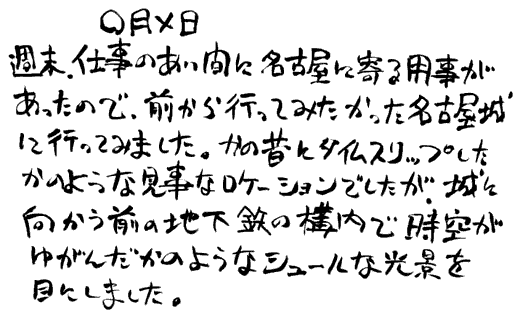 〇月×日
週末、仕事のあい間に名古屋に寄る用事が
あったので、前から行ってみたかった名古屋城
に行ってみました。かの昔にタイムスリップした
かのような見事なロケーションでしたが、城に
向かう前の地下鉄の構内で時空が
ゆがんだかのようなシュールな光景を
目にしました。